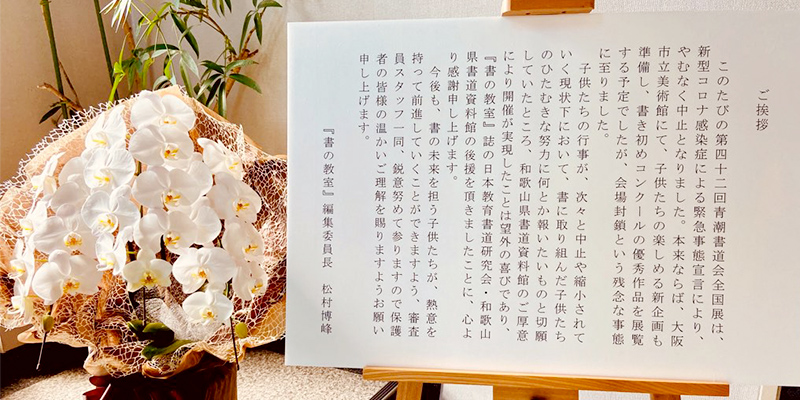 ご挨拶
このたびの第四十二回青潮書道会全国展は、
新型コロナ感染症による緊急事態宣言により、
やむなく中止となりました。本来ならば、大阪
市立美術館にて、子供たちの楽しめる新企画も
準備し、書き初めコンクールの優秀作品を展覧
する予定でしたが、会場封鎖という残念な事態
に至りました。
子供たちの行事が、次々と中止や縮小されて
いく現状下において、書に取り組んだ子供たち
のひたむきな努力に何とか報いたいものと切願
していたところ、和歌山県書道資料館のご厚意
により開催が実現したことは望外の喜びであり、
『書の教室』誌の日本教育書道研究会・和歌山
県書道資料館の後援を頂きましたことに、心よ
り感謝申し上げます。
今後も、書の未来を担う子供たちが、熱意を
持って前進していくことができますよう、審査
員スタッフ一同、鋭意努めて参りますので保護
者の皆様の温かいご理解を賜りますようお願い
申し上げます。
『書の教室』編集委員長 松村博峰